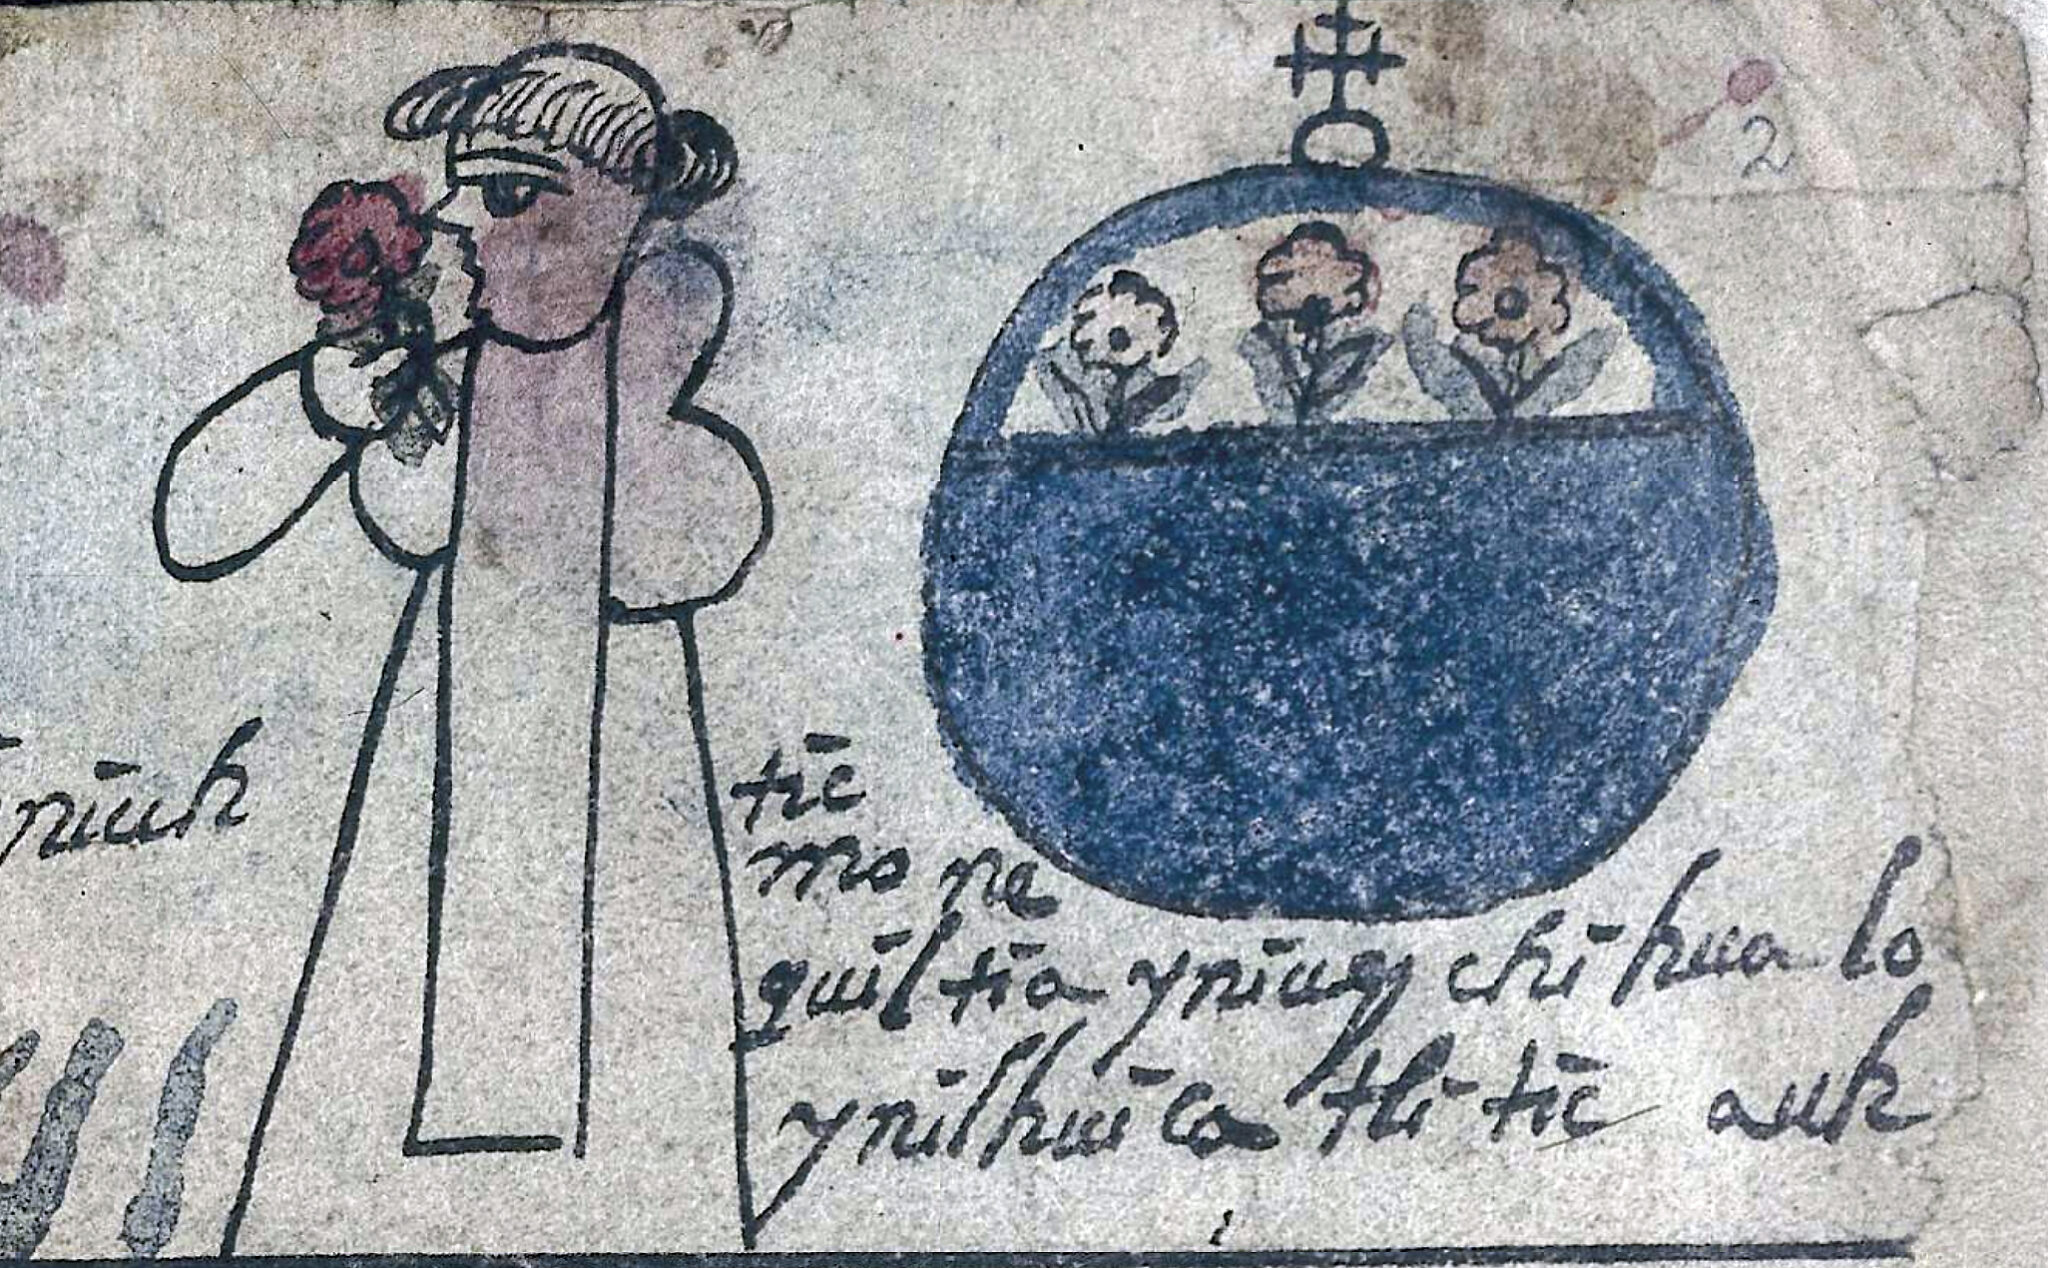 2
niuh
tic
mo ne
quil tia yniuqȝ chi hua lo
ynilhui ca tli tic auh